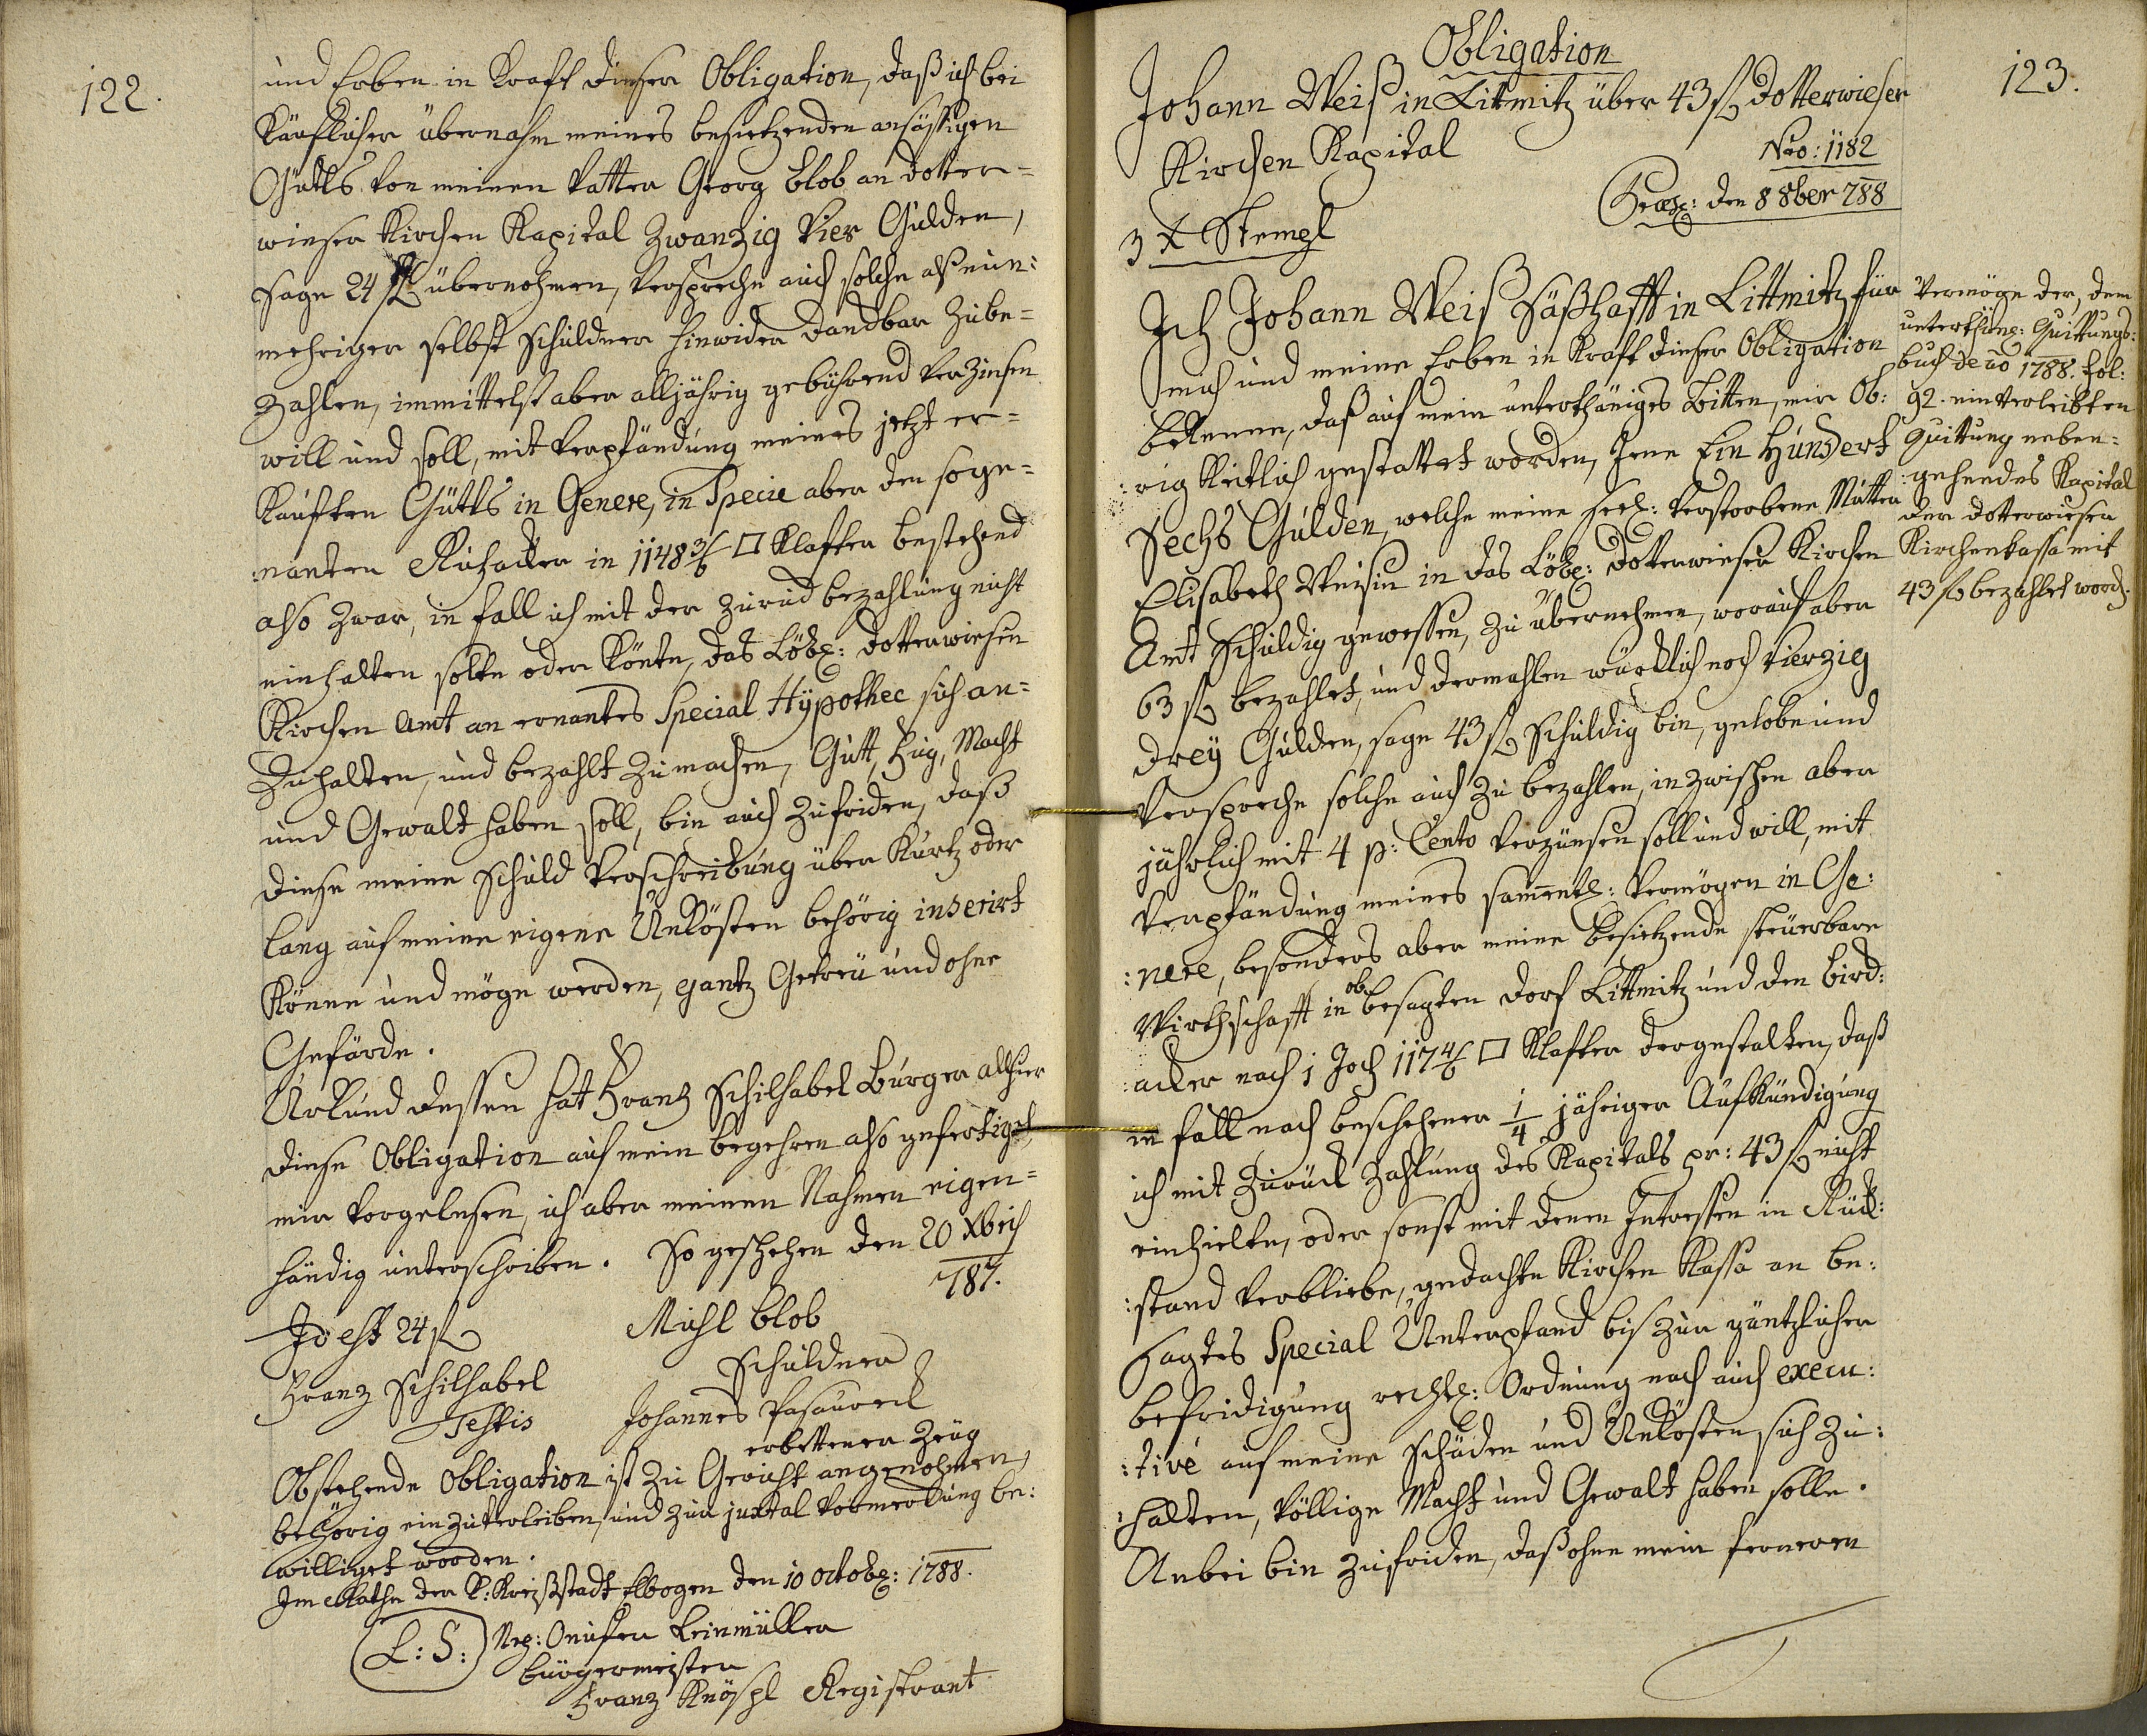 122.
und Erben in Kraft dieser Obligation, daß ich bei
Käuflicher übernahm meines besietzenden ansässigen
Güttls von meinen Vatter Georg Blob an dotter=
wieser Kirchen Kapital Zwanzig Vier Gulden,
sage 24 f übernohmen, verspreche auch solche alß nun:
mehriger selbst Schuldner hinwider danckbar zube=
zahlen, immittelst aber alljährig gebührend verzinsen
will und soll, mit Verpfändung meines jetzt er=
kauften Güttls in Genere, in Specie aber den soge=
nanten Ruhacker in 1148 3/6 □ Klafter bestehend
also zwar, in fall ich mit der zurückbezahlung nicht
einhalten solte oder könte, das Löbl: dotterwieser
Kirchen Amt an ernantes Special Hÿpothec sich an=
zuhalten, und bezahlt zumachen, Gutt, Fug, Macht
und Gewalt haben soll, bin auch zufriden, daß
diese meine Schuld Verschreibung über Kurtz oder
lang auf meine eigene Unkösten behörig inserirt
könne und möge werden, gantz Getreü und ohne
Gefärde.
Urkund dessen hat Frantz Schilhabel Burger allhier
diese Obligation auf mein begehren also gefertiget,
mir vorgelesen, ich aber meinen Nahmen eigen=
händig unterschriben. So geschehen den 20 Xbris
787.
Id est 24 f
Michl Blob
Schuldner
Franz Schilhabel
Testis
Johannes Pasaureck
erbettener Zeüg
Obstehende Obligation ist zu Gericht angenohmen,
behörig einzuverleiben, und zur juxtal Vormerckung be:
williget worden.
Im Rathe der K: Kreißstadt Elbogen den 10 Octobr: 1788.
L: S:
Onufer Leinmüller
Bürgermeister
Franz Knöspl Registrant
123.
Obligation
Johann Weis in Littmitz über 43 f Dotterwieser
Kirchen Kapital
Nro: 1182
Præs: den 8 8ber 788
3 x Stempl
Ich Johann Weis Säßhafft in Littmitz für
mich und meine Erben in Kraft dieser Obligation
bekenne, daß auf mein unterthäniges Bitten, mir Ob:
:rigkeitlich gestattet worden, Jene Ein Hundert
Sechs Gulden, welche meine seel: verstorbene Mutter
Elisabeth Weisin in das Löbl: Dotterwieser Kirchen
Amt Schuldig gewessen, zu übernehmen, worauf aber
63 f bezahlet, und dermahlen würcklich noch Vierzig
Dreÿ Gulden, sage 43 f Schuldig bin, gelobe und
Verspreche solche auch zu bezahlen, inzwischen aber
jährlich mit 4 p: Cento verzünsen soll und will, mit
Verpfändung meines sammentl: Vermögen in Ge:
:nere, besonders aber meine besietzende steüerbare
Wirthschafft in ob besagten Dorf Littmitz und den Bird:
:acker nach 1 Joch 117 4/6 □ Klafter dergestalten, daß
in fall nach beschehener 1/4 jähriger Aufkündigung
ich mit Zuruck Zahlung des Kapitals pr: 43 f nicht
einhielte, oder sonst mit denen Intressen in Rück:
:stand verbliebe, gedachte Kirchen Kassa an be:
sagtes Special Unterpfand bis zur gäntzlicher
befridigung rechtl: Ordnung nach auch execu:
:tivé auf meine Schäden und Unkösten sich zu:
:halten, völlige Macht und Gewalt haben solle.
Anbei bin zufriden, daß ohne mein ferneren
Vermöge der, dem
unterthäng: Quittungs:
buch de ao 1788. fol:
92. einverleibten
Quittung neben:
:gehendes Kapital
der dotterwieser
Kirchenkassa mit
43 f bezahlet word.